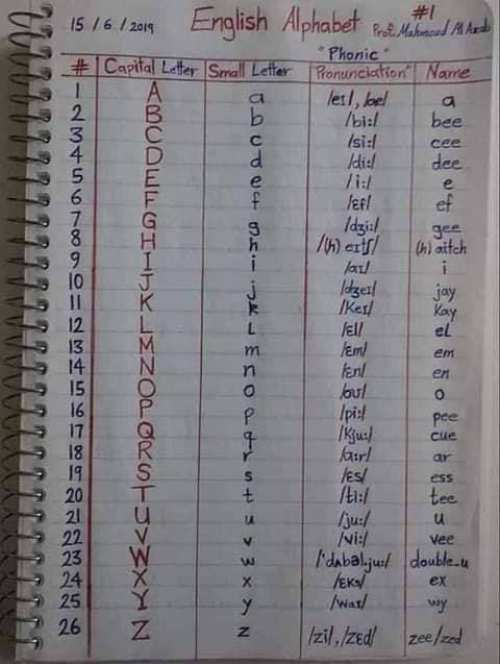 15 / 6 / 2019 English Alphabet #1
Prof. Mahmoud Al
"Phonic"
# Capital Letter Small Letter Pronunciation" Name
1 A a /eɪ/, /æ/ a
2 B b /bi:/ bee
3 C c /si:/ cee
4 D d /di:/ dee
5 E e /i:/ e
6 F f /ɛf/ ef
7 G g /dʒi:/ gee
8 H h /(h) eɪtʃ/ (h) aitch
9 I i /aɪ/ i
10 J j /dʒeɪ/ jay
11 K k /Keɪ/ Kay
12 L L /ɛl/ el
13 M m /ɛm/ em
14 N n /ɛn/ en
15 O o /oʊ/ o
16 P p /pi:/ pee
17 Q q /kju:/ cue
18 R r /a:r/ ar
19 S s /ɛs/ ess
20 T t /ti:/ tee
21 U u /ju:/ u
22 V v /vi:/ vee
23 W w /'dʌbəl.ju:/ double_u
24 X x /ɛks/ ex
25 Y y /waɪ/ wy
26 Z z /zi/, /zɛd/ zee/zed